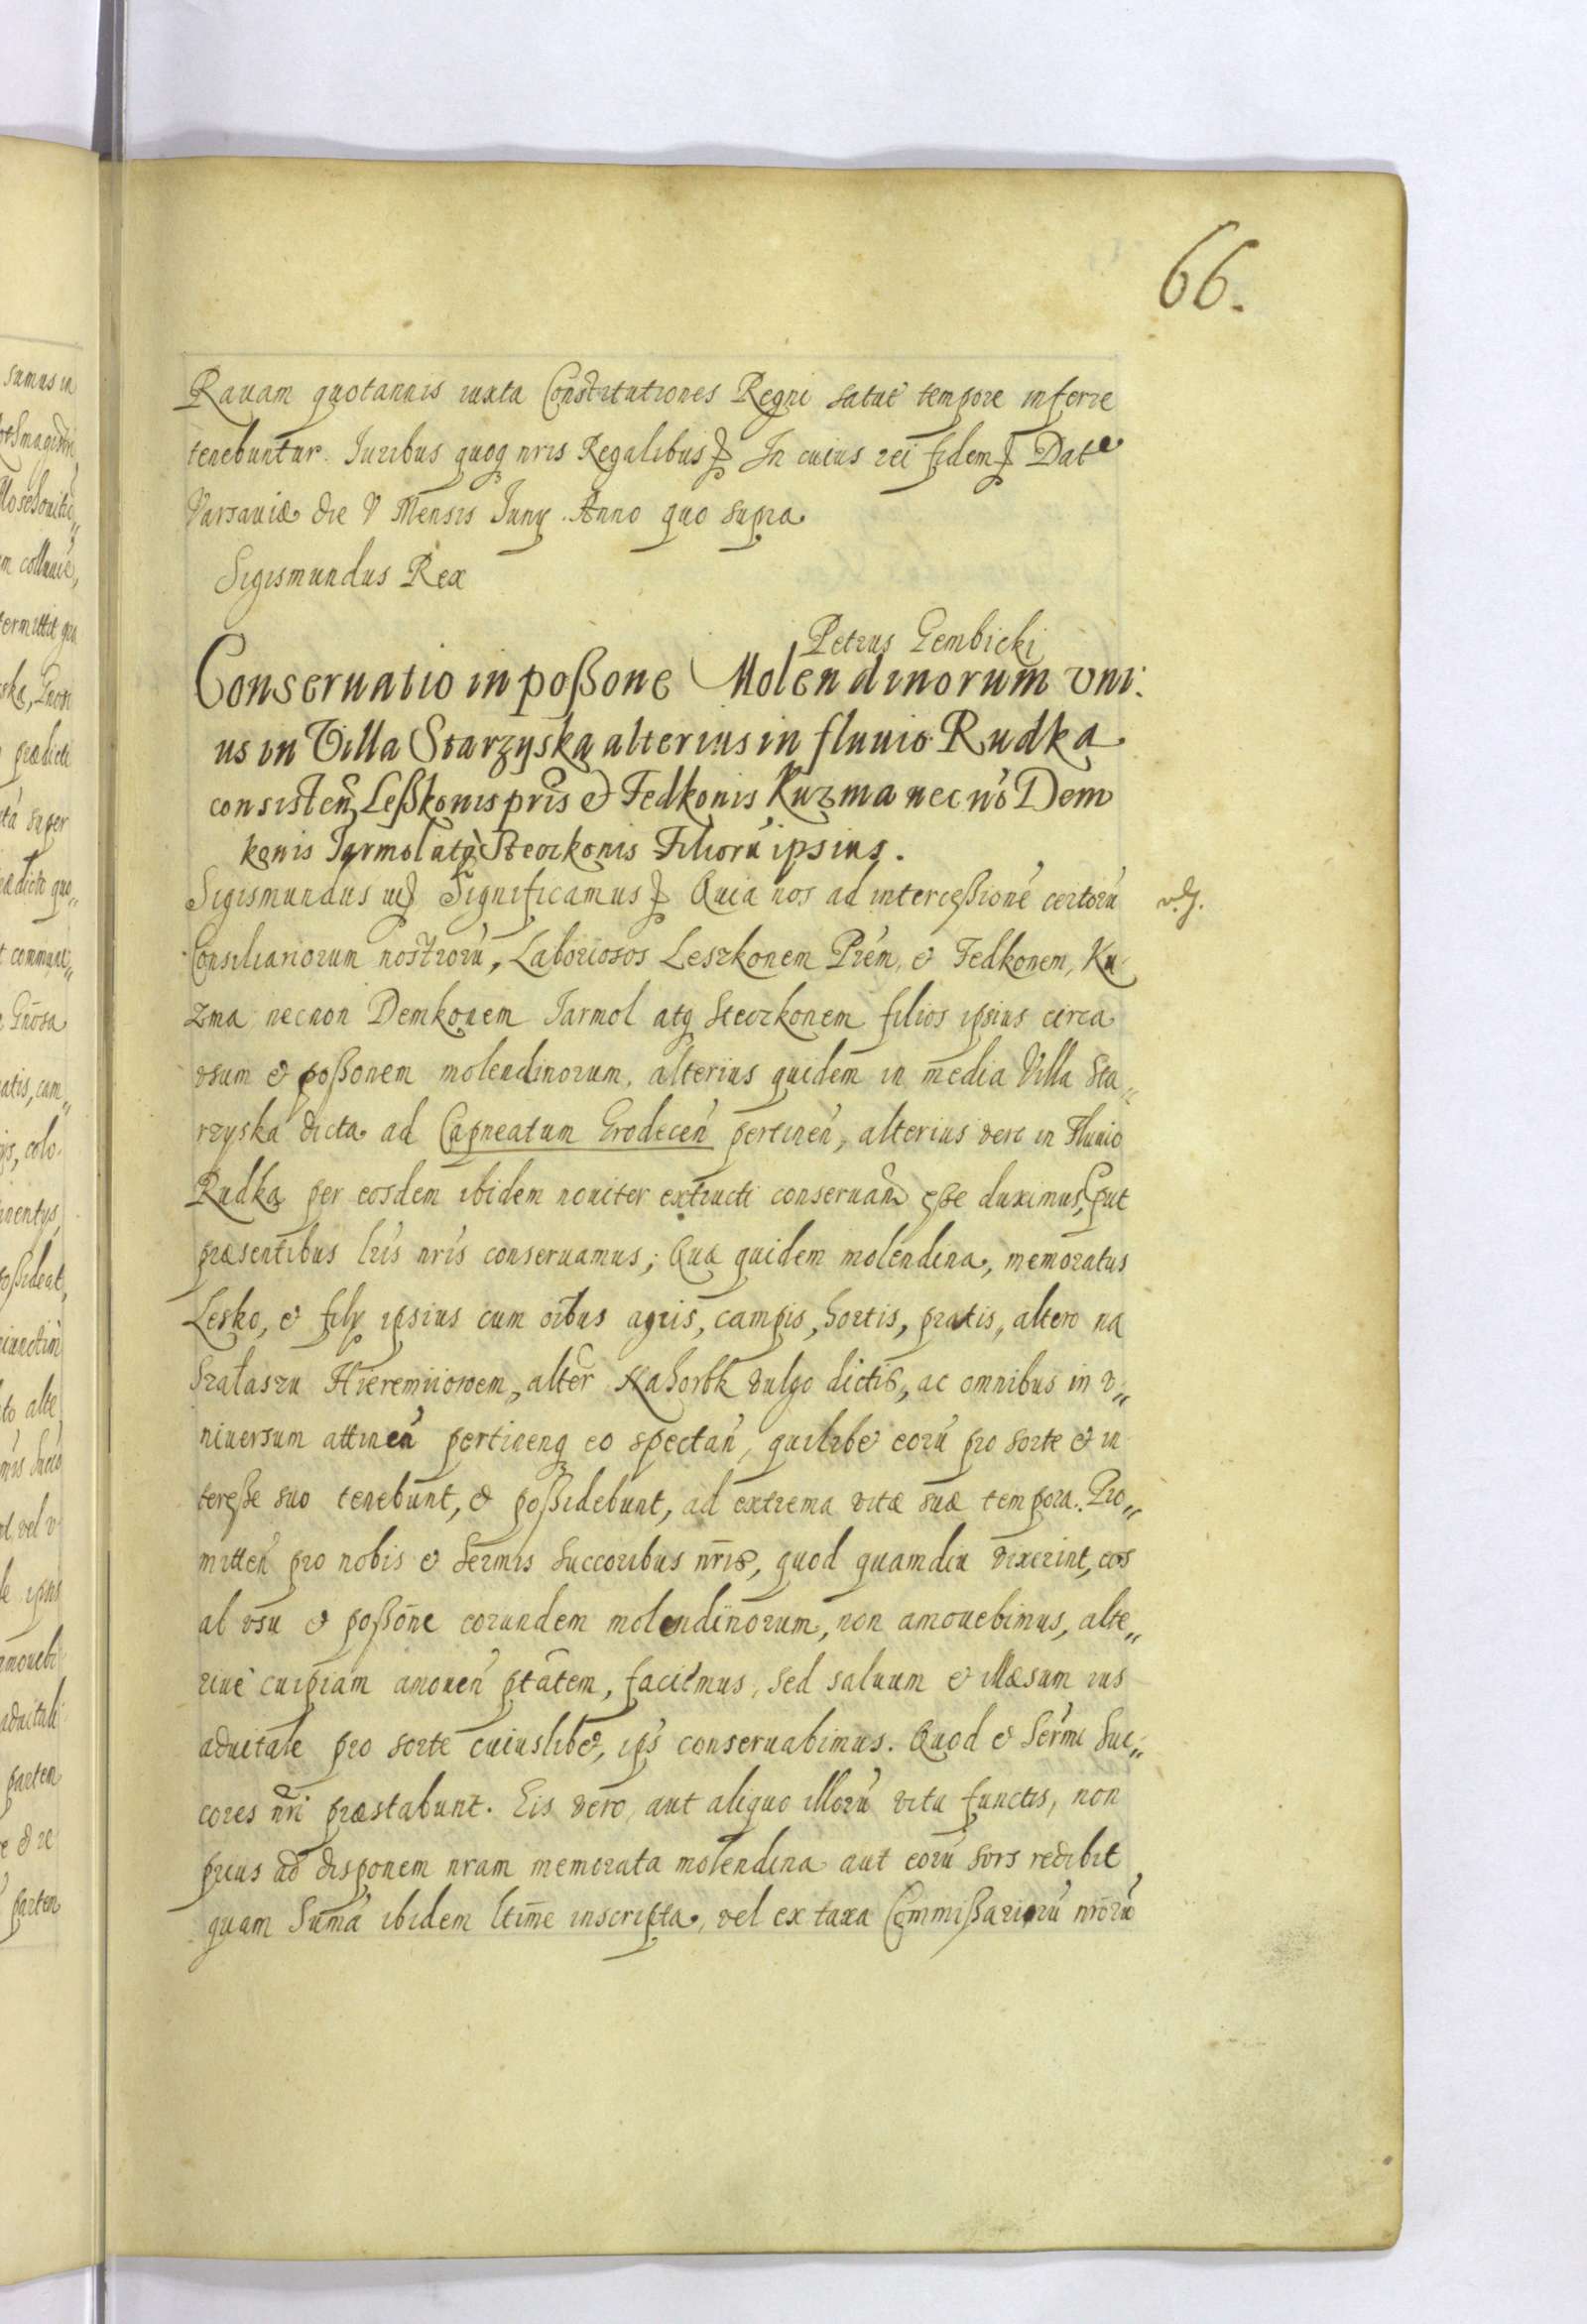 66.
Rauam quotannis iuxta Constitutiones Regni satut tempore inferre
tenebuntur. Iuribus quoq nris Regalibus In cuius rei fidem Date
Varsauiæ die V Mensis Iuny. Anno quo supra
Sigismundus Rex
Petrus Gembicki
Conseruatio in poßone Molendinorum vni:
us in Villa Starzyska alterius in fluuio Rudka
consisteñ Leßkonis pris & Fedkonis Kuzma necnõ Dem
konis Jarmol atq Steczkonis Filiorũ ipsius.
Sigismundus Significamus Quia nos ad intercessionẽ certorũ
Consiliariorum nostrorũ, Laboriosos Leszkonem Prẽm, & Fedkonem, Ku
zma necnon Demkonem Jarmol atq Steczkonem filios ipsius circa
vsum & poßonem molendinorum, alterius quidem in media Villa Sta„
rzyska dicta ad Capneatum Grodeceñ pertineñ, alterius vero in Fluuio
Rudka per eosdem ibidem nouiter extructi conseruand eße duximus, put
præsentibus lris nris conseruamus; Quæ quidem molendina, memoratus
Lesko, & fily ipsius cum oibus agris, campis, hortis, pratis, altero na
Szałaszu Hieremiiowem, alter Nahorbk vulgo dictis, ac omnibus in v„
niuersum attineñ pertinenq eo spectañ, quilibet eorũ pro sorte & in
tereße suo tenebunt, & poßidebunt, ad extrema vitæ suæ tempora. Pro„
mitteñ pro nobis & Sermis Succoribus nris, quod quamdiu vixerint, eos
ab vsu & poßone eorundem molendinorum, non amouebimus, alte„
riue cuipiam amoueñ ptatem, faciemus, sed saluum & illæsum ius
aduitale pro sorte cuiuslibet, ips conseruabimus. Quod & Sermi Suc„
cores nri præstabunt. Eis vero, aut aliquo illorũ vita functis, non
prius ad disponem nram memorata molendina aut eorũ sors redibit
quam Suma ibidem ltime inscripta, vel ex taxa Commißariorũ nrorũ